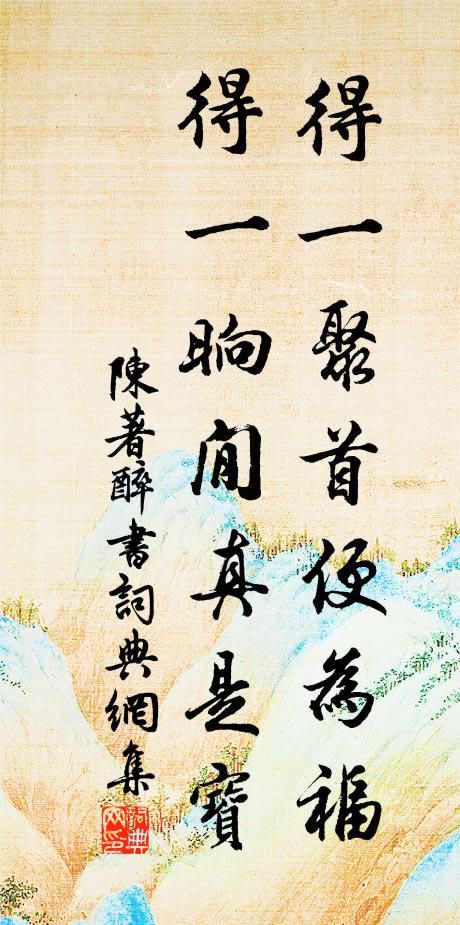 得一聚首便為福
得一晌閒真是寶
陳著醉書詞典網集
詞典網印